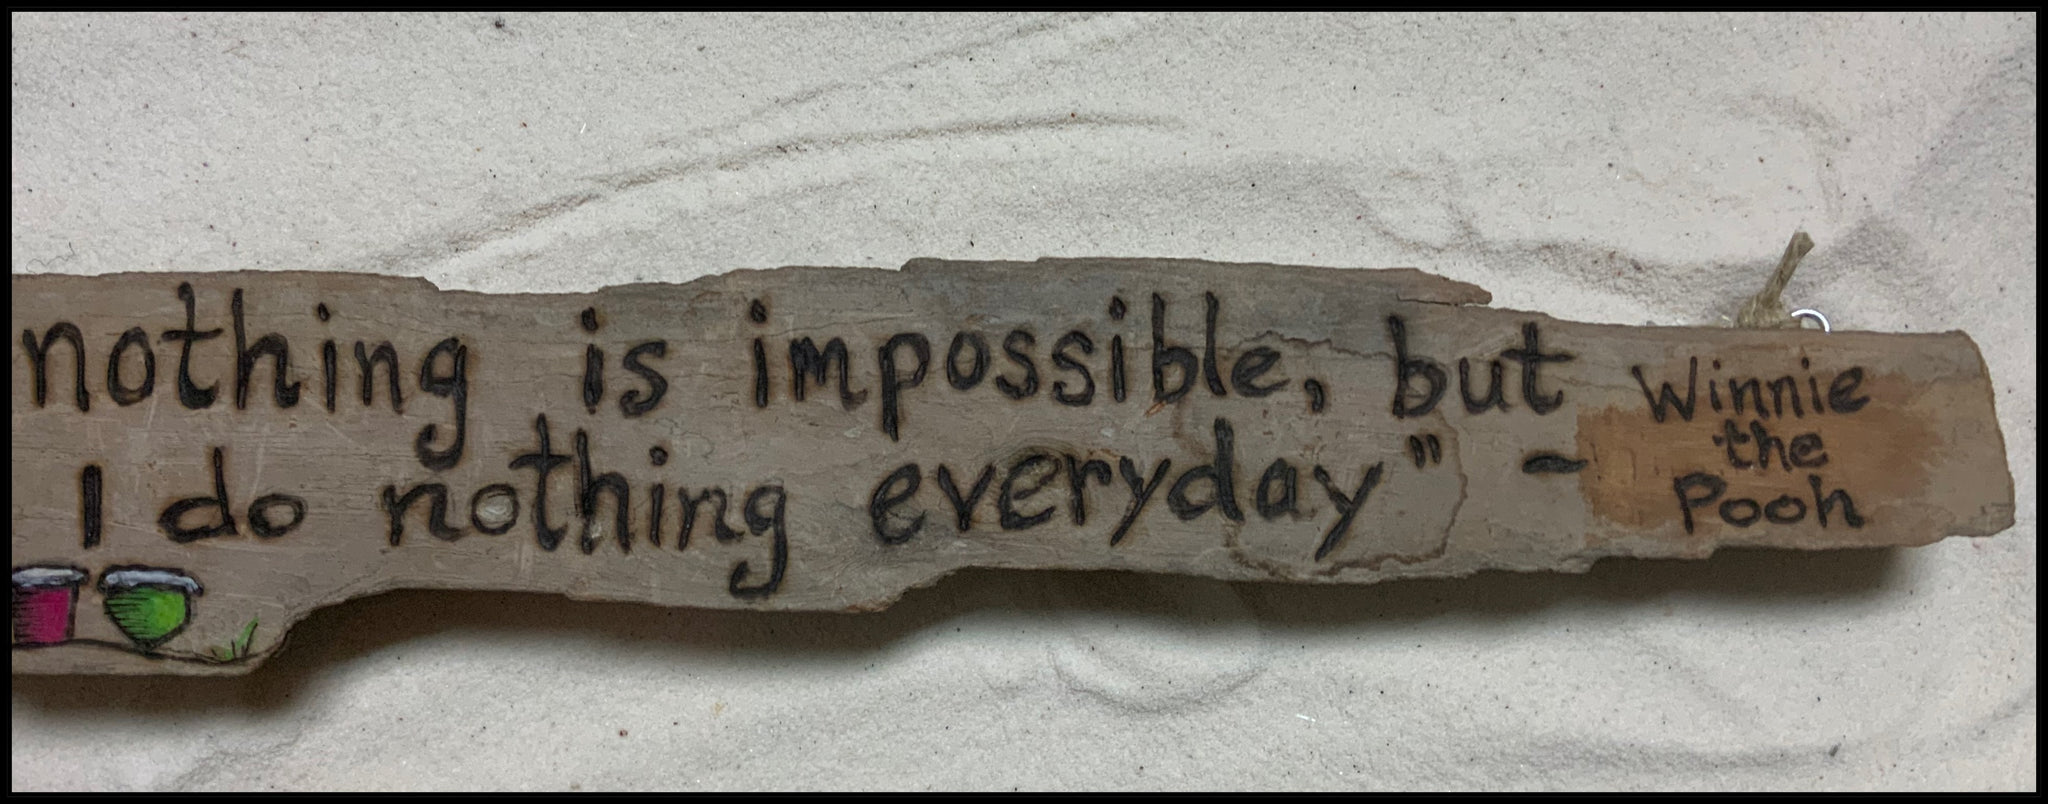 nothing is impossible, but
I do nothing everyday" ~
Winnie
the
Pooh